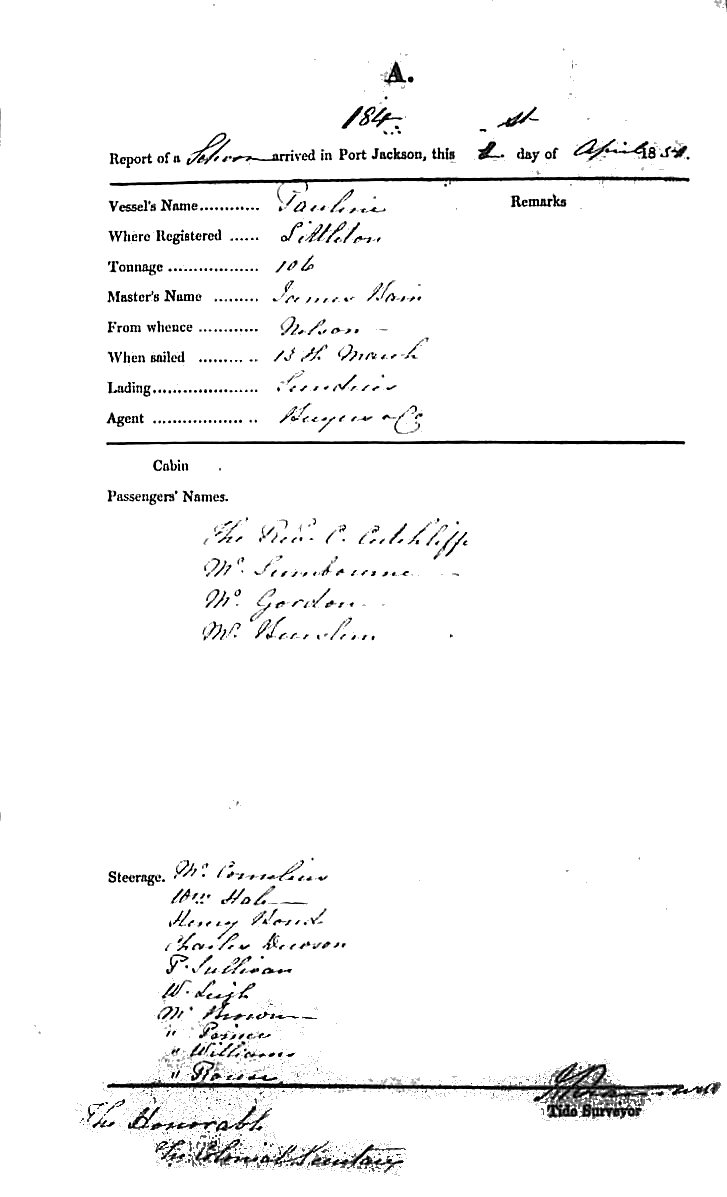 A.
184 st
Report of a Schoon arrived in Port Jackson, this 1 day of April 185
Vessel's Name............ Pauline Remarks
Where Registered ...... Littleton
Tonnage .................. 106
Master's Name ......... James
From whence ............ Nelson –
When sailed ......... .. 15th March
Lading..................... Sundries
Agent .................. .. & Co
Cabin
Passengers' Names.
The Revd. C. Cutchliffe
Mr. –
Mr. Gordon
Mr.
Steerage. Mr. Cornelius
Wm Hale
Henry Bond
Charles Dewson
P. Sullivan
W. Leigh
Mr Brown
"
" Williams
"
Tide Surveyor
The Honorable
The Colonial Secretary